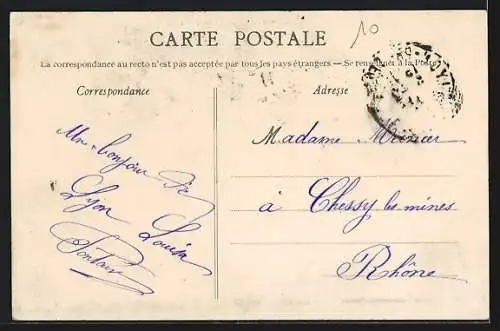 10
CARTE POSTALE
La correspondance au recto n'est pas acceptée par tous les pays étrangers.—Se renseigner à la Poste
Correspondance
Adresse
Un bonjour de
Lyon
Louise
Madame Meunier
à Chessy les mines
Rhône